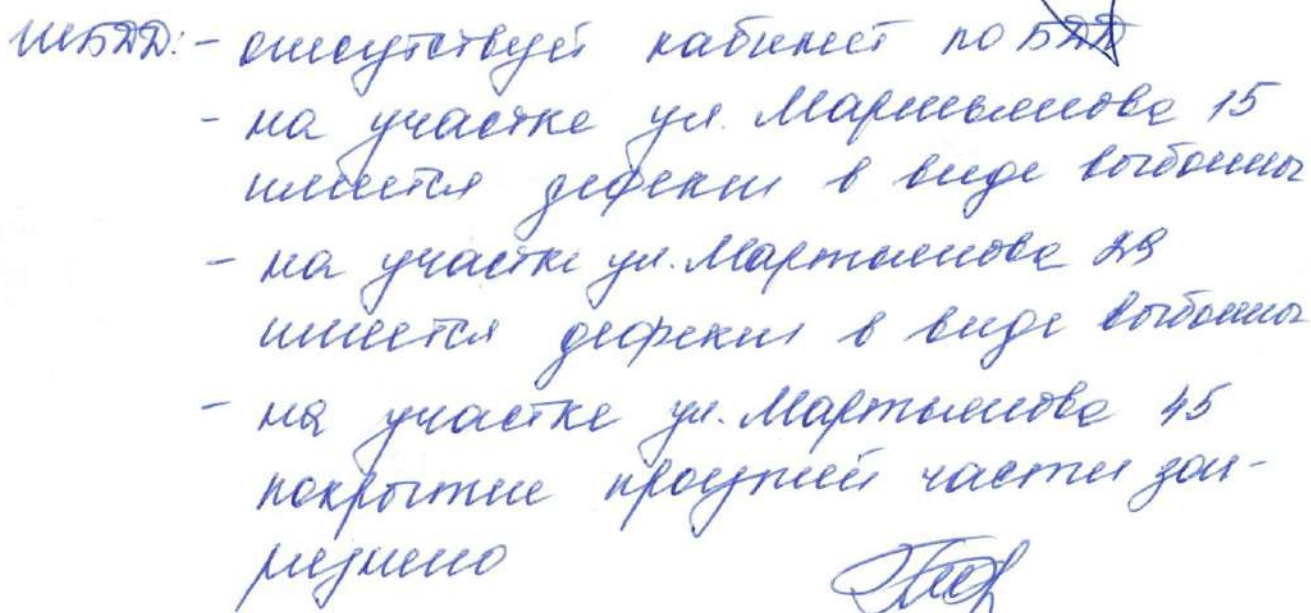 ШБДД: - отсутствует кабинет по БДД
- на участке ул. Мартынова 15
имеется дефекты в виде выбоины
- на участке ул. Мартынова 29
имеется дефекты в виде выбоины
- на участке ул. Мартынова 45
покрытие проезжей части заг-
рязнено